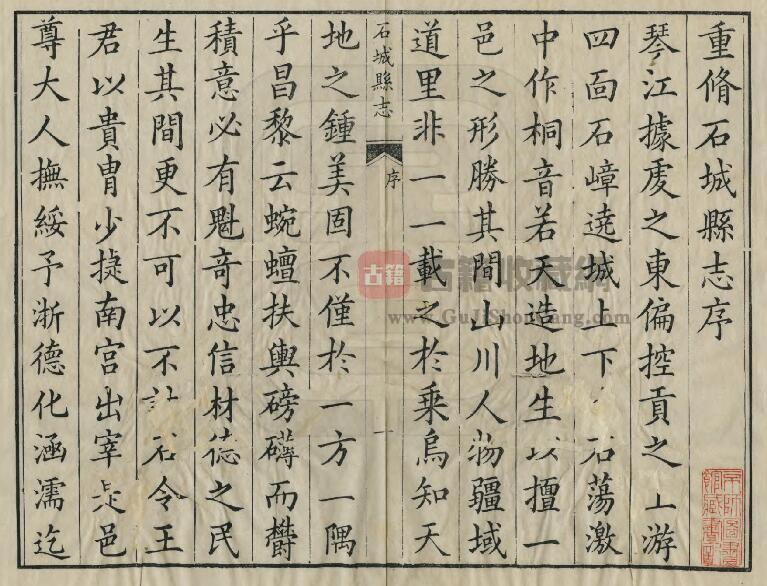 重脩石城縣志序
琴江據虔之東偏控貢之上游
四面石嶂遶城上下石蕩激
中作桐音若天造地生以擅一
邑之形勝其間山川人物疆域
道里非一一載之於乘烏知天
石城縣志
序
一
地之鍾美固不僅於一方一隅
乎昌黎云蜿蟺扶輿磅礴而欝
積意必有魁奇忠信材德之民
生其間更不可以不誌石令王
君以貴胄少捷南宮出宰是邑
尊大人撫綏予浙德化涵濡迄
古籍
古籍收藏網
www.GuJiShouCang.com